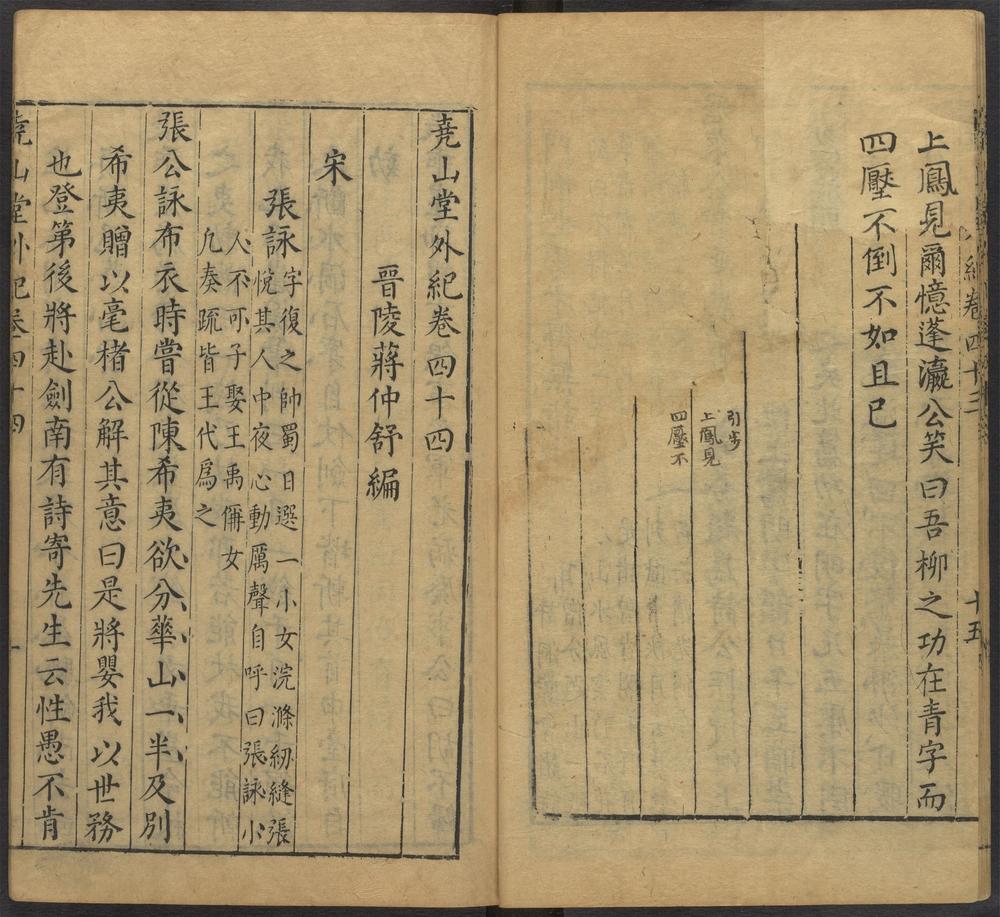 紀卷四十三 十五
上鳳見爾憶蓬瀛公笑曰吾柳之功在青字而
四壓不倒不如且已
引步
上鳳見
四壓不
堯山堂外紀卷四十四
晉陵蔣仲舒編
宋
張詠字復之帥蜀日選一小女浣滌紉縫張
悅其人中夜心動厲聲自呼曰張詠小
人不可不可子娶王禹偁女
凢奏疏皆王代爲之
張公詠布衣時嘗從陳希夷欲分華山一半及別
希夷贈以毫楮公解其意曰是將嬰我以世務
也登第後將赴劍南有詩寄先生云性愚不肯
堯山堂外紀卷四十四 一